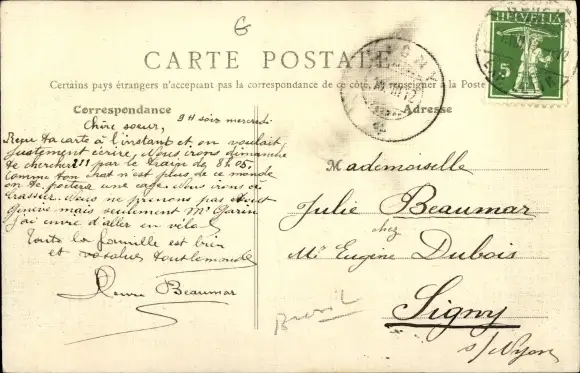 G
HELVETIA
5
CARTE POSTALE
Certains pays étrangers n'acceptant pas la correspondance de ce côté, se renseigner à la Poste
Correspondance
Adresse
9 H soir mercredi
Chère soeur,
Reçu ta carte à l'instant et on voulait
justement écrire, Nous irons dimanche
te chercher!!! par le train de 8h05.
Comme ton chat n'est plus de ce monde
on te portera une cage. Nous irons
Nous ne prenons pas
Genève mais seulement Mr Garin
J'ai envie d'aller en vélo
Toute la famille est bien
et salue tout le monde
Beaumar
Mademoiselle
Julie Beaumar
chez
Mr Eugène Dubois
Signy
s/Nyon